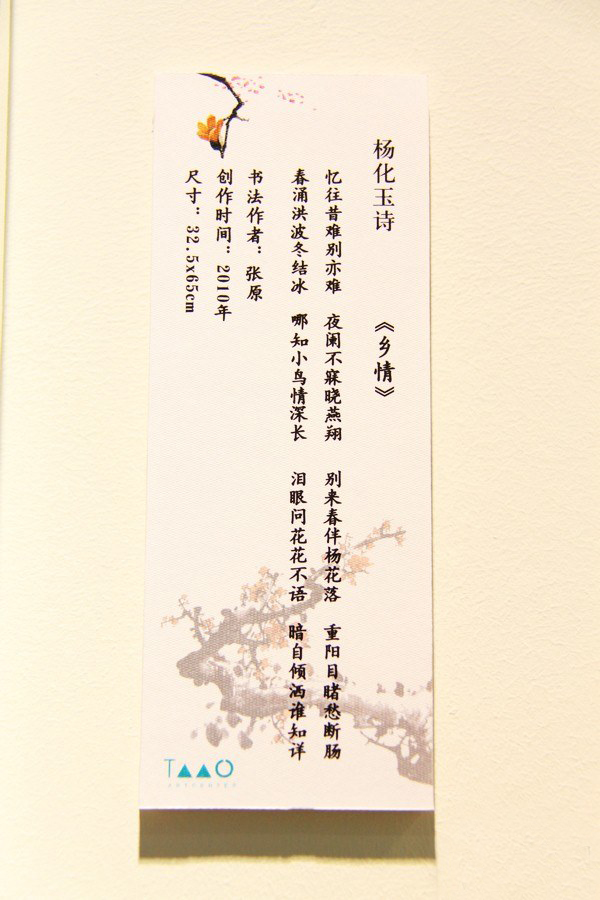 杨化玉诗 《乡情》
忆往昔难别亦难 夜阑不寐晓燕翔 别来春伴杨花落 重阳目睹愁断肠
春涌洪波冬结冰 哪知小鸟情深长 泪眼问花花不语 暗自倾洒谁知详
书法作者：张原
创作时间：2010年
尺寸：32.5x65cm
TAAO